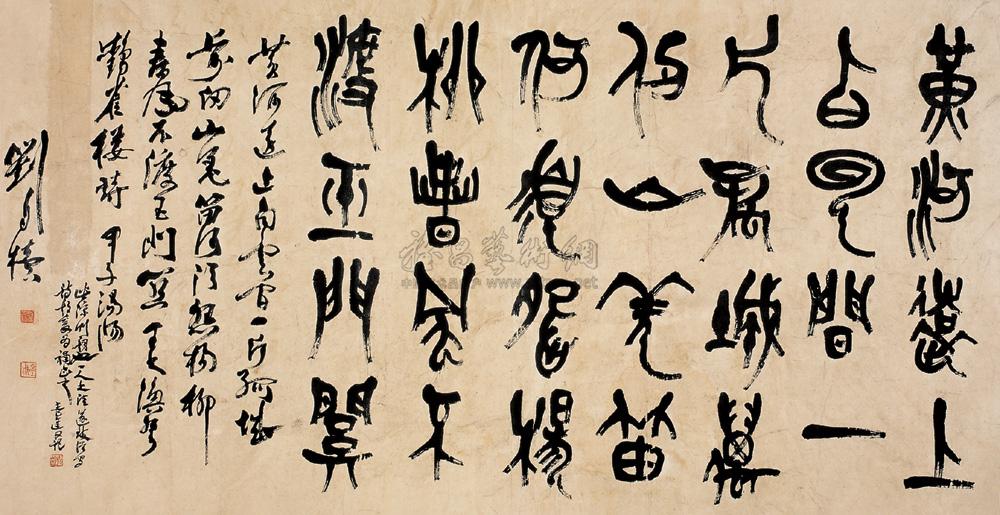 黄河遠上
白雲間一
片孤城萬
仞山羌笛
何須怨楊
柳春風不
渡玉門關
黄河遠上白雲間一片孤城
萬仞山羌笛何須怨楊柳
春風不渡玉門關 王之渙登
鸛雀樓詩 甲子
劉自櫝
雅昌藝術網